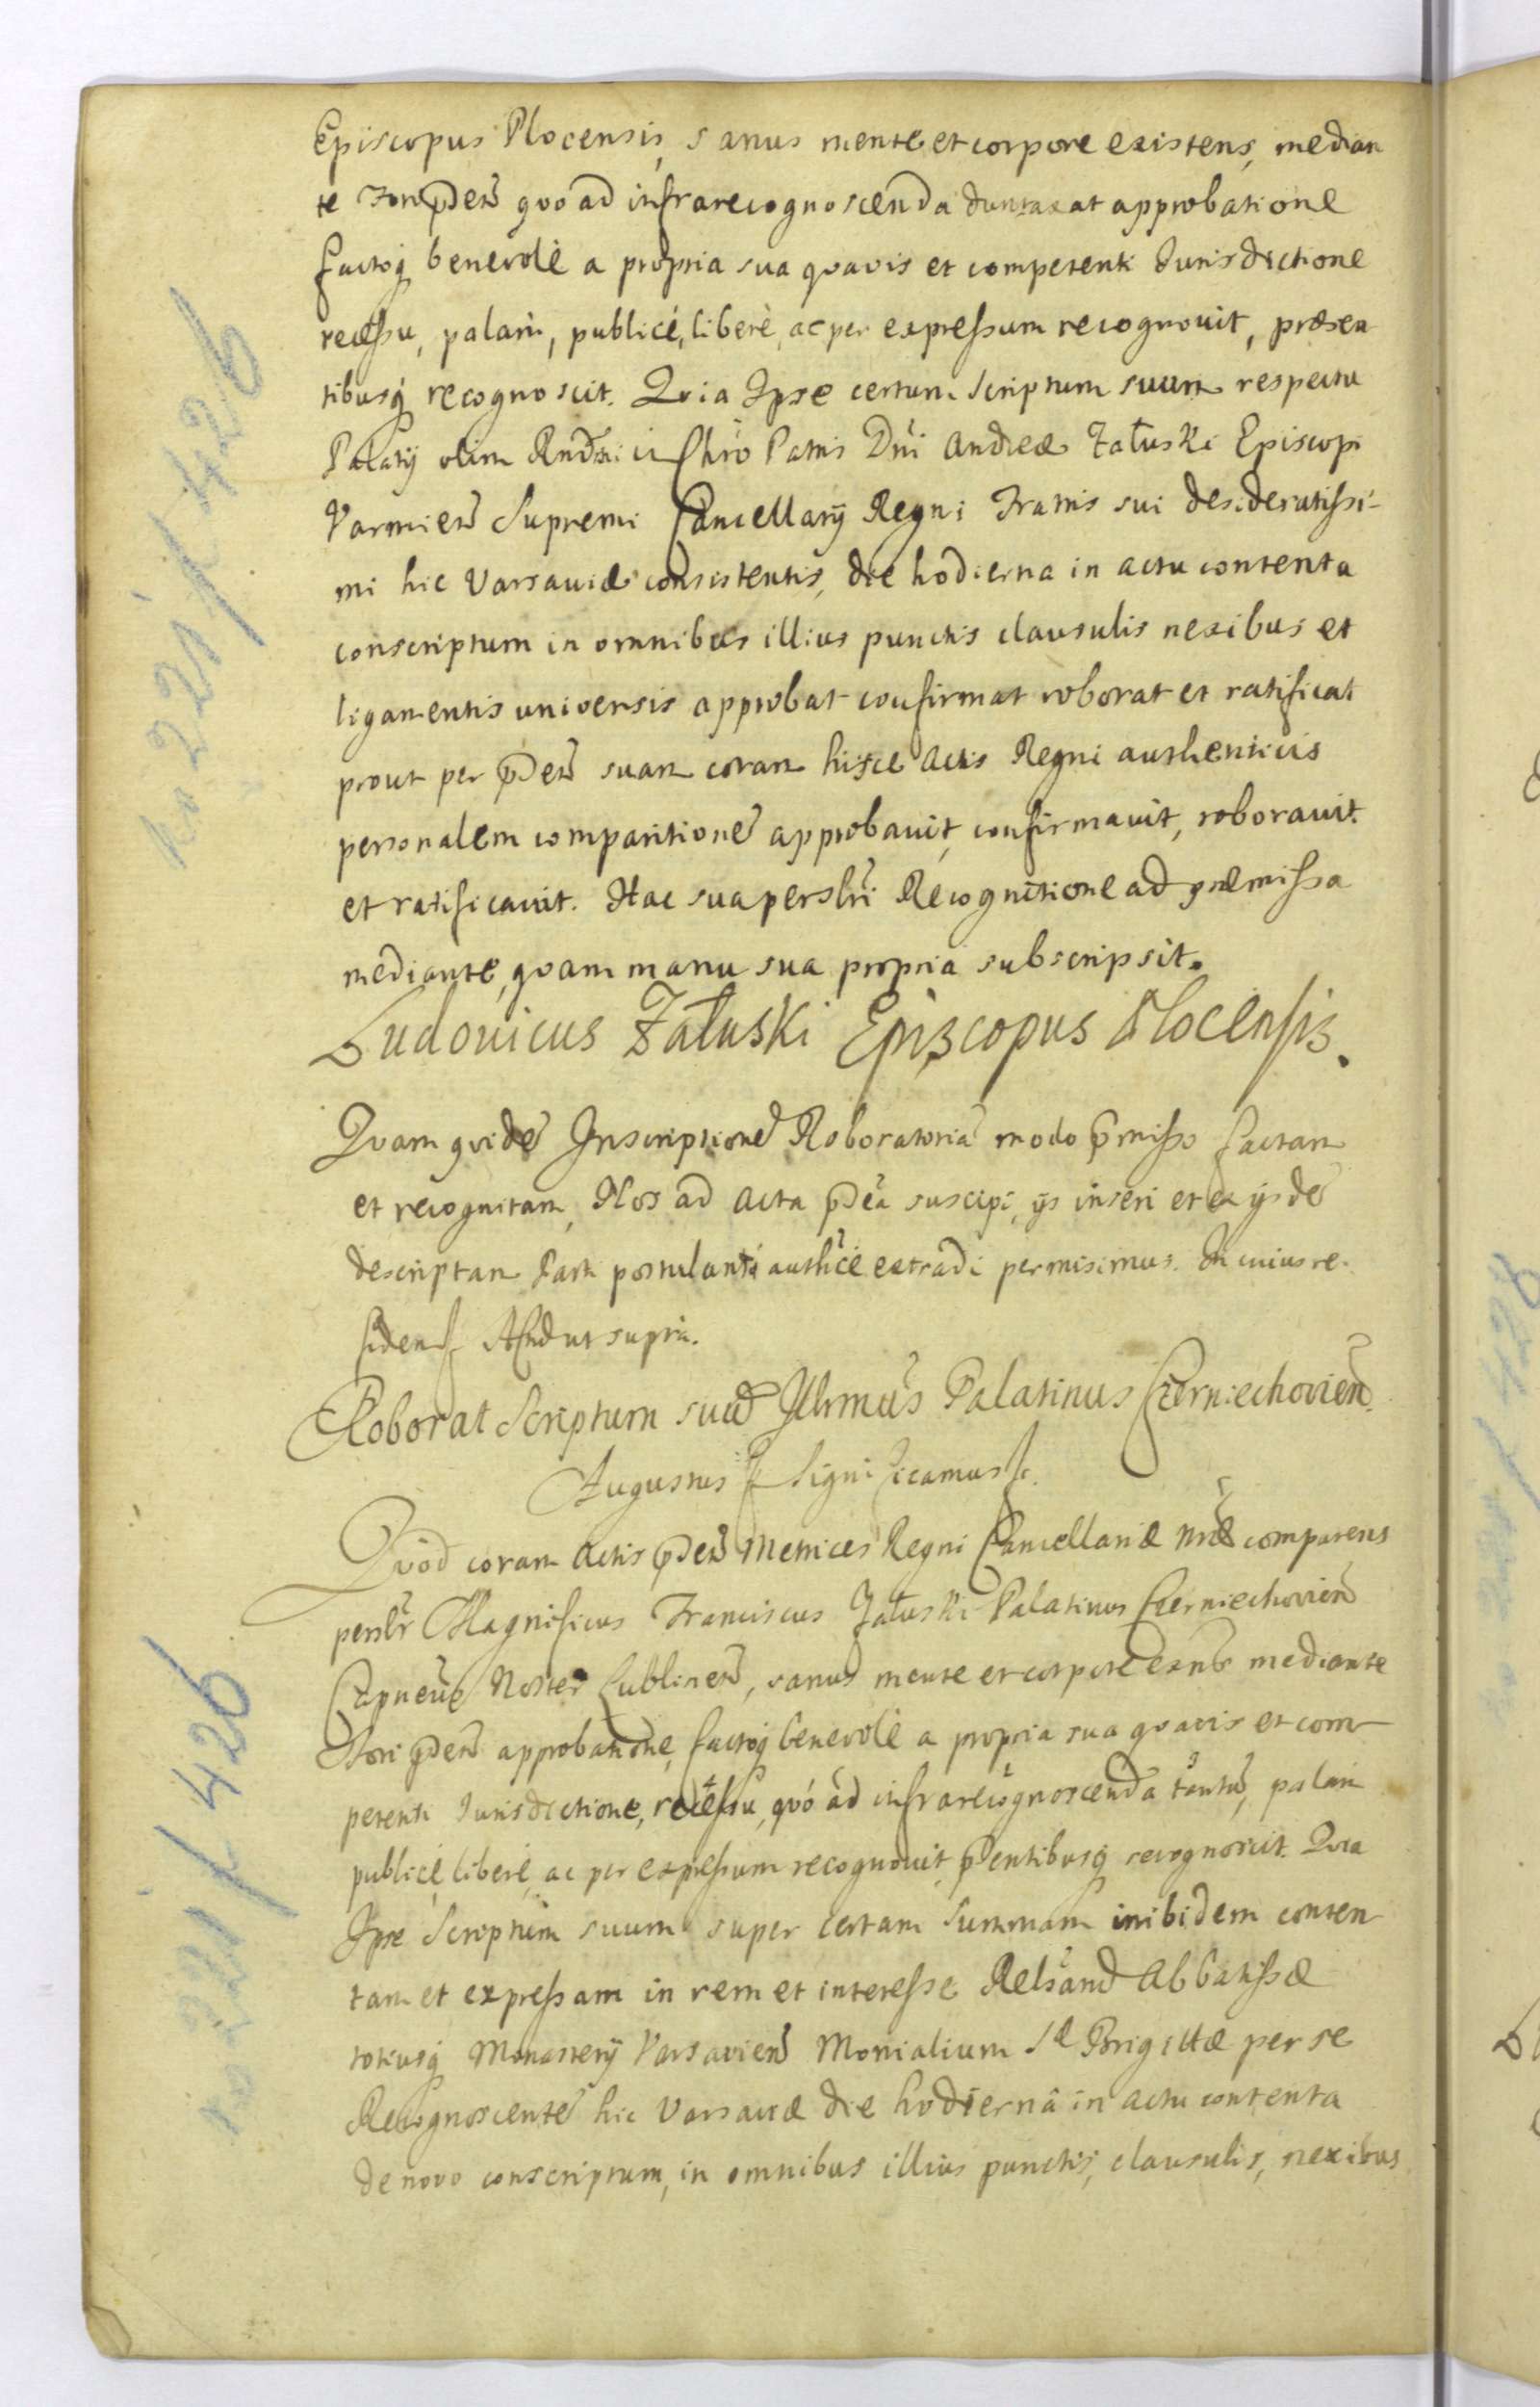 Episcopus Plocensis, sanus mente et corpore existens, median
te Fori p̃den̄ quo ad infrarecognoscenda duntaxat approbatione
factoq́ benevolè a propria sua quavis et competenti Jurisdictione
recessu, palam̀, publicé, liberè, ac per expressum recognovit, præsen
tibusq́ recognoscit. Quia Ipse certum Scriptum suum respectu
Palatij olim Rndsmi in Chr̃o Patris Dñi Andreæ Załuski Episcopi
Varmien̄ Supremi Cancellarij Regni Fratris sui desideratissi-
mi hic Varsaviæ consistentis, die hodierna in actu contenta
conscriptum in omnibus illius punctis clausulis nexibus et
ligamentis universis approbat confirmat roborat et ratificat
prout per p̃den̄ suam coram hisce Actis Regni authenticis
personalem comparitione͂ approbavit, confirmavit, roboravit
et ratificavit. Hac sua persl̃ri Recognitione ad præmissa
mediante, quam manu sua propria subscripsit.
Ludovicus Załuski Episcopus Plocensis.
Quam quide͂ Inscriptione͂ Roboratoria͂ modo p̃misso factam
et recognitam, Nos ad Acta p̃dc̃a suscipi, ijs inseri et ex ijsde͂
descriptam Parti postulanti authc̃e extradi permisimus. In cuius re.
fidem Dat̃ ut supra.
Roborat Scriptum suu͂ Illr̃mus Palatinus Czerniechovien̄.
Augustus Significamus
Quod coram Actis p̃den̄ Metrices Regni Cancellariæ Nr̃æ comparens
persl̃r Magnificus Franciscus Załuski Palatinus Czerniechovien̄
Capneus Noster Lublinen̄, sanus mente et corpore exñs mediante
Fori p̃den̄ approbatione, factoq́ benevolè a propria sua quavis et com
petenti Jurisdictione, recessu, quó ád infrarecognoscenda tantu͂, palam
publicè, liberè, ac per expressum recognovit, p̃sentibusq́ recognoscit. Quia
Ipse Scriptum suum super certam Summam inibidem conten
tam et expressam in rem et interesse Relr̃and Abbatissæ
totiusq́ Monasterij Varsavien̄ Monialium Sæ Brigittæ per se
Recognoscente͂ hic Varsaviæ die hodiernâ in actu contenta
de novo conscriptum, in omnibus illius punctis, clausulis, nexibus